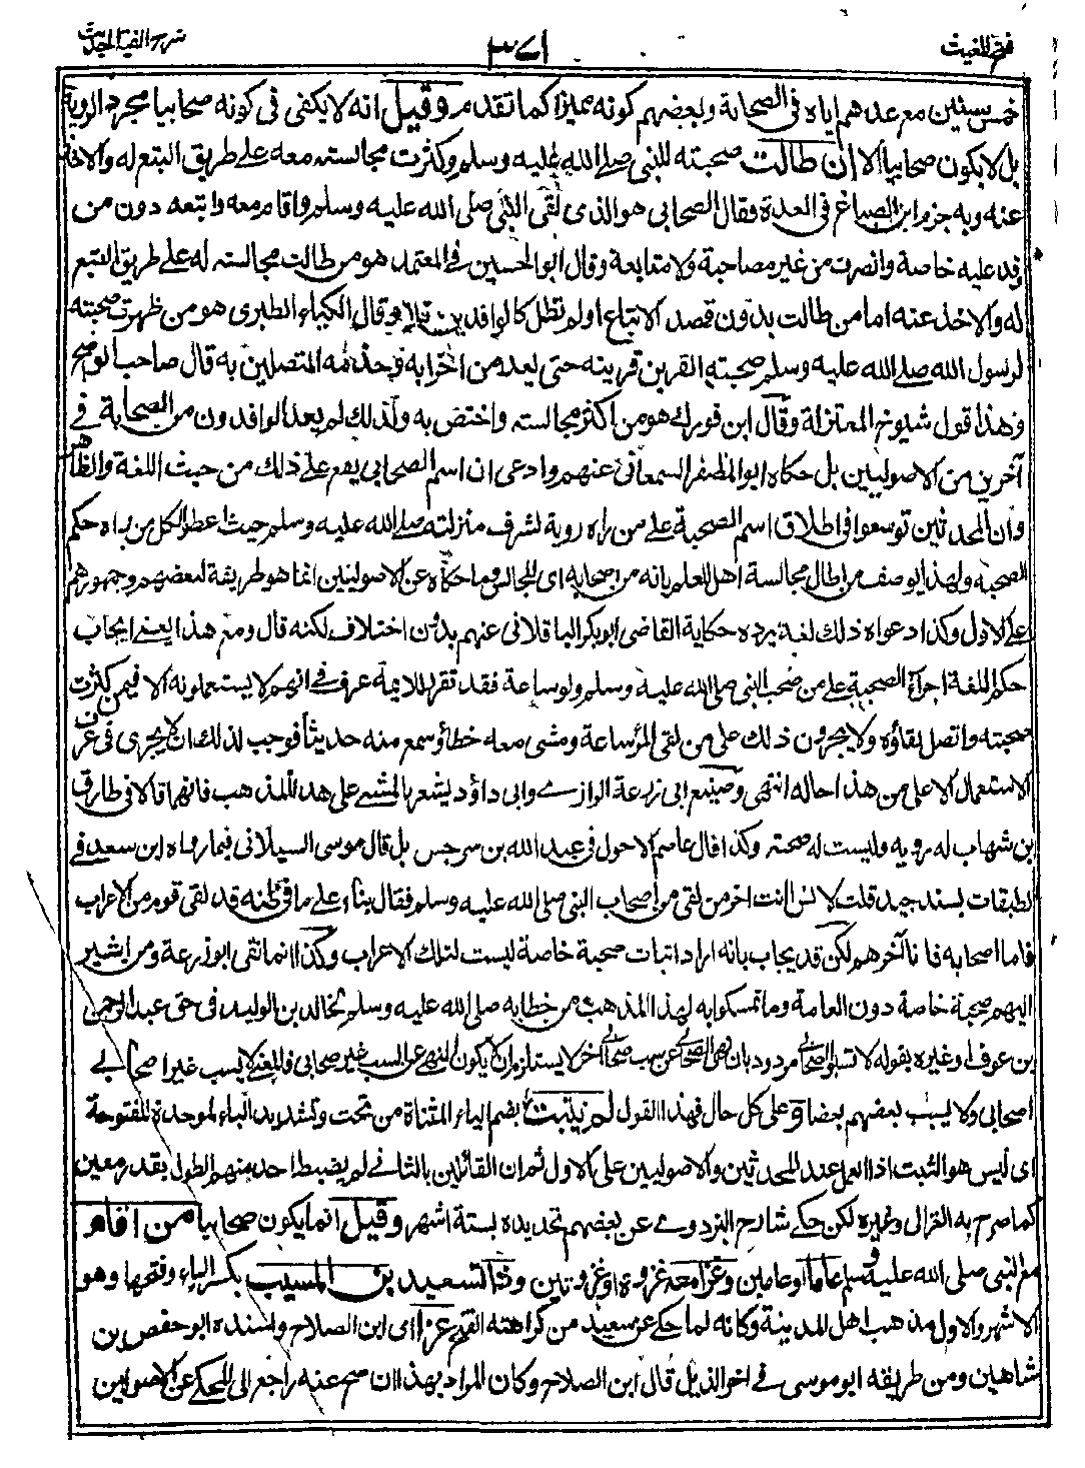 فتح المغيث
٣٧١
شرح الفية الحديث
خمس سنين مع عدهم اياه فى الصحابة وبعضهم كونه مميزا كما تقدم وقيل انه لا يكفى فى كونه صحابيا مجرد الروية
بل لا يكون صحابيا الا ان طالت صحبته للنبى صلى الله عليه وسلم وكثرت مجالسته معه على طريق التبع له والاخذ
عنه وبه جزم ابن الصباغ فى العدة فقال الصحابى هو الذى لقى النبى صلى الله عليه وسلم واقام معه واتبعه دون من
وفد عليه خاصة وانصرف من غير مصاحبة ولا متابعة وقال ابو الحسين فى المعتمد هو من طالت مجالسته له على طريق التبع
له والاخذ عنه اما من طالت بدون قصد الاتباع او لم تطل كالوافدين فلا وقال الكياء الطبرى هو من ظهرت صحبته
لرسول الله صلى الله عليه وسلم صحبة القرين قرينه حتى يعد من احزابه وخدمه المتصلين به قال صاحب الواضح
وهذا قول شيوخ المعتزلة وقال ابن فورك هو من اكثر مجالسته واختص به ولذلك لم يعد الوافدون من الصحابة فى
آخرين من الاصوليين بل حكاه ابو المظفر السمعانى عنهم وادعى ان اسم الصحابى يقع على ذلك من حيث اللغة والظاهر
وان المحدثين توسعوا فى اطلاق اسم الصحبة على من راه روية لشرف منزلته صلى الله عليه وسلم حيث اعطوا لكل من راه حكم
الصحبة ولهذا يوصف من اطال مجالسة اهل العلم بانه من اصحابه اى المجالس وما حكاه عن الاصوليين انما هو طريقة لبعضهم وجمهورهم
على الاول وكذا دعواه ذلك لغة يرده حكاية القاضى ابى بكر الباقلانى عنهم بدون اختلاف لكنه قال ومع هذا يعنى ايجاب
حكم اللغة اجراء الصحبة على من صحب النبى صلى الله عليه وسلم ولو ساعة فقد تقرر للايمة عرف فى انهم لا يستعملونه الا فيمن كثرت
صحبته واتصل لقاؤه ولا يجرون ذلك على من لقى المرء ساعة ومشى معه خطا وسمع منه حديثا فوجب لذلك ان لا يجرى فى عرف
الاستعمال الا على من هذا حاله انتهى وصنيع ابى زرعة الرازى وابى داؤد يشعر بالمشى على هذا المذهب فانهما قالا فى طارق
بن شهاب له روية وليست له صحبة وكذا قال عاصم الاحول فى عبد الله بن سرجس بل قال موسى السيلانى فيما رواه ابن سعد فى
الطبقات بسند جيد قلت لانس أانت اخر من لقى من اصحاب النبى صلى الله عليه وسلم فقال بناء على ما فى ظنه قد لقى قوم من الاعراب
فاما اصحابه فانا آخرهم لكن قد يجاب بانه اراد اثبات صحبة خاصة ليست لتلك الاعراب وكذا انما نفى ابو زرعة ومن اشير
اليهم صحبة خاصة دون العامة وما تمسكوا به لهذا المذهب من خطابه صلى الله عليه وسلم لخالد بن الوليد فى حق عبد الرحمن
بن عوف او غيره بقوله لا تسبوا اصحابى مردود بان نهى الصحابى عن سب صحابى آخر لا يستلزم ان لا يكون النهى عن السب غير صحابى فالمعنى لا يسب غير اصحابى
اصحابى ولا يسب بعضهم بعضا و على كل حال فهذا القول لم يثبت بضم الياء المثناة من تحت وتشديد الباء الموحدة المفتوحة
اى ليس هو الثبت اذ العمل عند المحدثين والاصوليين على الاول ثم ان القائلين بالثانى لم يضبط احد منهم الطول بقدر معين
كما صرح به الغزالى وغيره لكن حكى شارح البزدوى عن بعضهم تحديده بستة اشهر وقيل انما يكون صحابيا من اقام
مع النبى صلى الله عليه وسلم عاما او عامين وغزا معه غزوة او غزوتين وذا لسعيد بن المسيب بكسر الياء وفتحها وهو
الاشهر والاول مذهب اهل المدينة وكانه لما حكى عن سعيد من كراهته الفتح عزا اى ابن الصلاح واسنده ابو حفص بن
شاهين ومن طريقه ابو موسى فى اخر الذيل قال ابن الصلاح وكان المراد بهذا ان صح عنه راجع الى المحكى عن الاصوليين